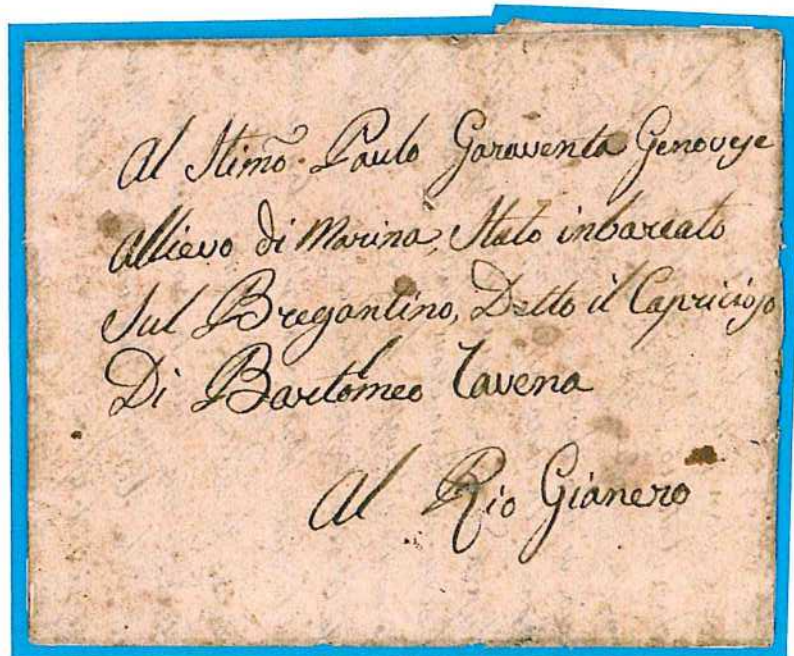 Al Stimo. Paulo Garaventa Genovese
Allievo di Marina, Stato inbarcato
Sul Bregantino, Detto il Capricioso
Di Bartomeo Cavena
Al Rio Gianero